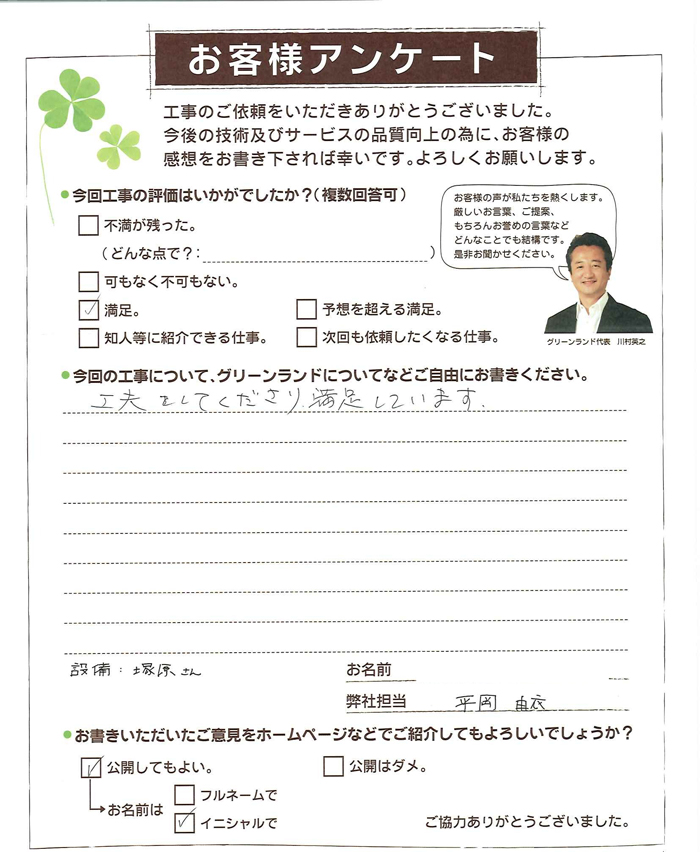 お客様アンケート
工事のご依頼をいただきありがとうございました。
今後の技術及びサービスの品質向上の為に、お客様の
感想をお書き下されば幸いです。よろしくお願いします。
今回工事の評価はいかがでしたか?(複数回答可)
不満が残った。
(どんな点で?: )
可もなく不可もない。
満足。
予想を超える満足。
知人等に紹介できる仕事。
次回も依頼したくなる仕事。
お客様の声が私たちを熱くします。
厳しいお言葉、ご提案、
もちろんお誉めの言葉など
どんなことでも結構です。
是非お聞かせください。
グリーンランド代表 川村英之
今回の工事について、グリーンランドについてなどご自由にお書きください。
工夫をしてくださり、満足しています.
設備:塚原さん
お名前
弊社担当 平岡 由衣
お書きいただいたご意見をホームページなどでご紹介してもよろしいでしょうか?
公開してもよい。
公開はダメ。
お名前は
フルネームで
イニシャルで
ご協力ありがとうございました。